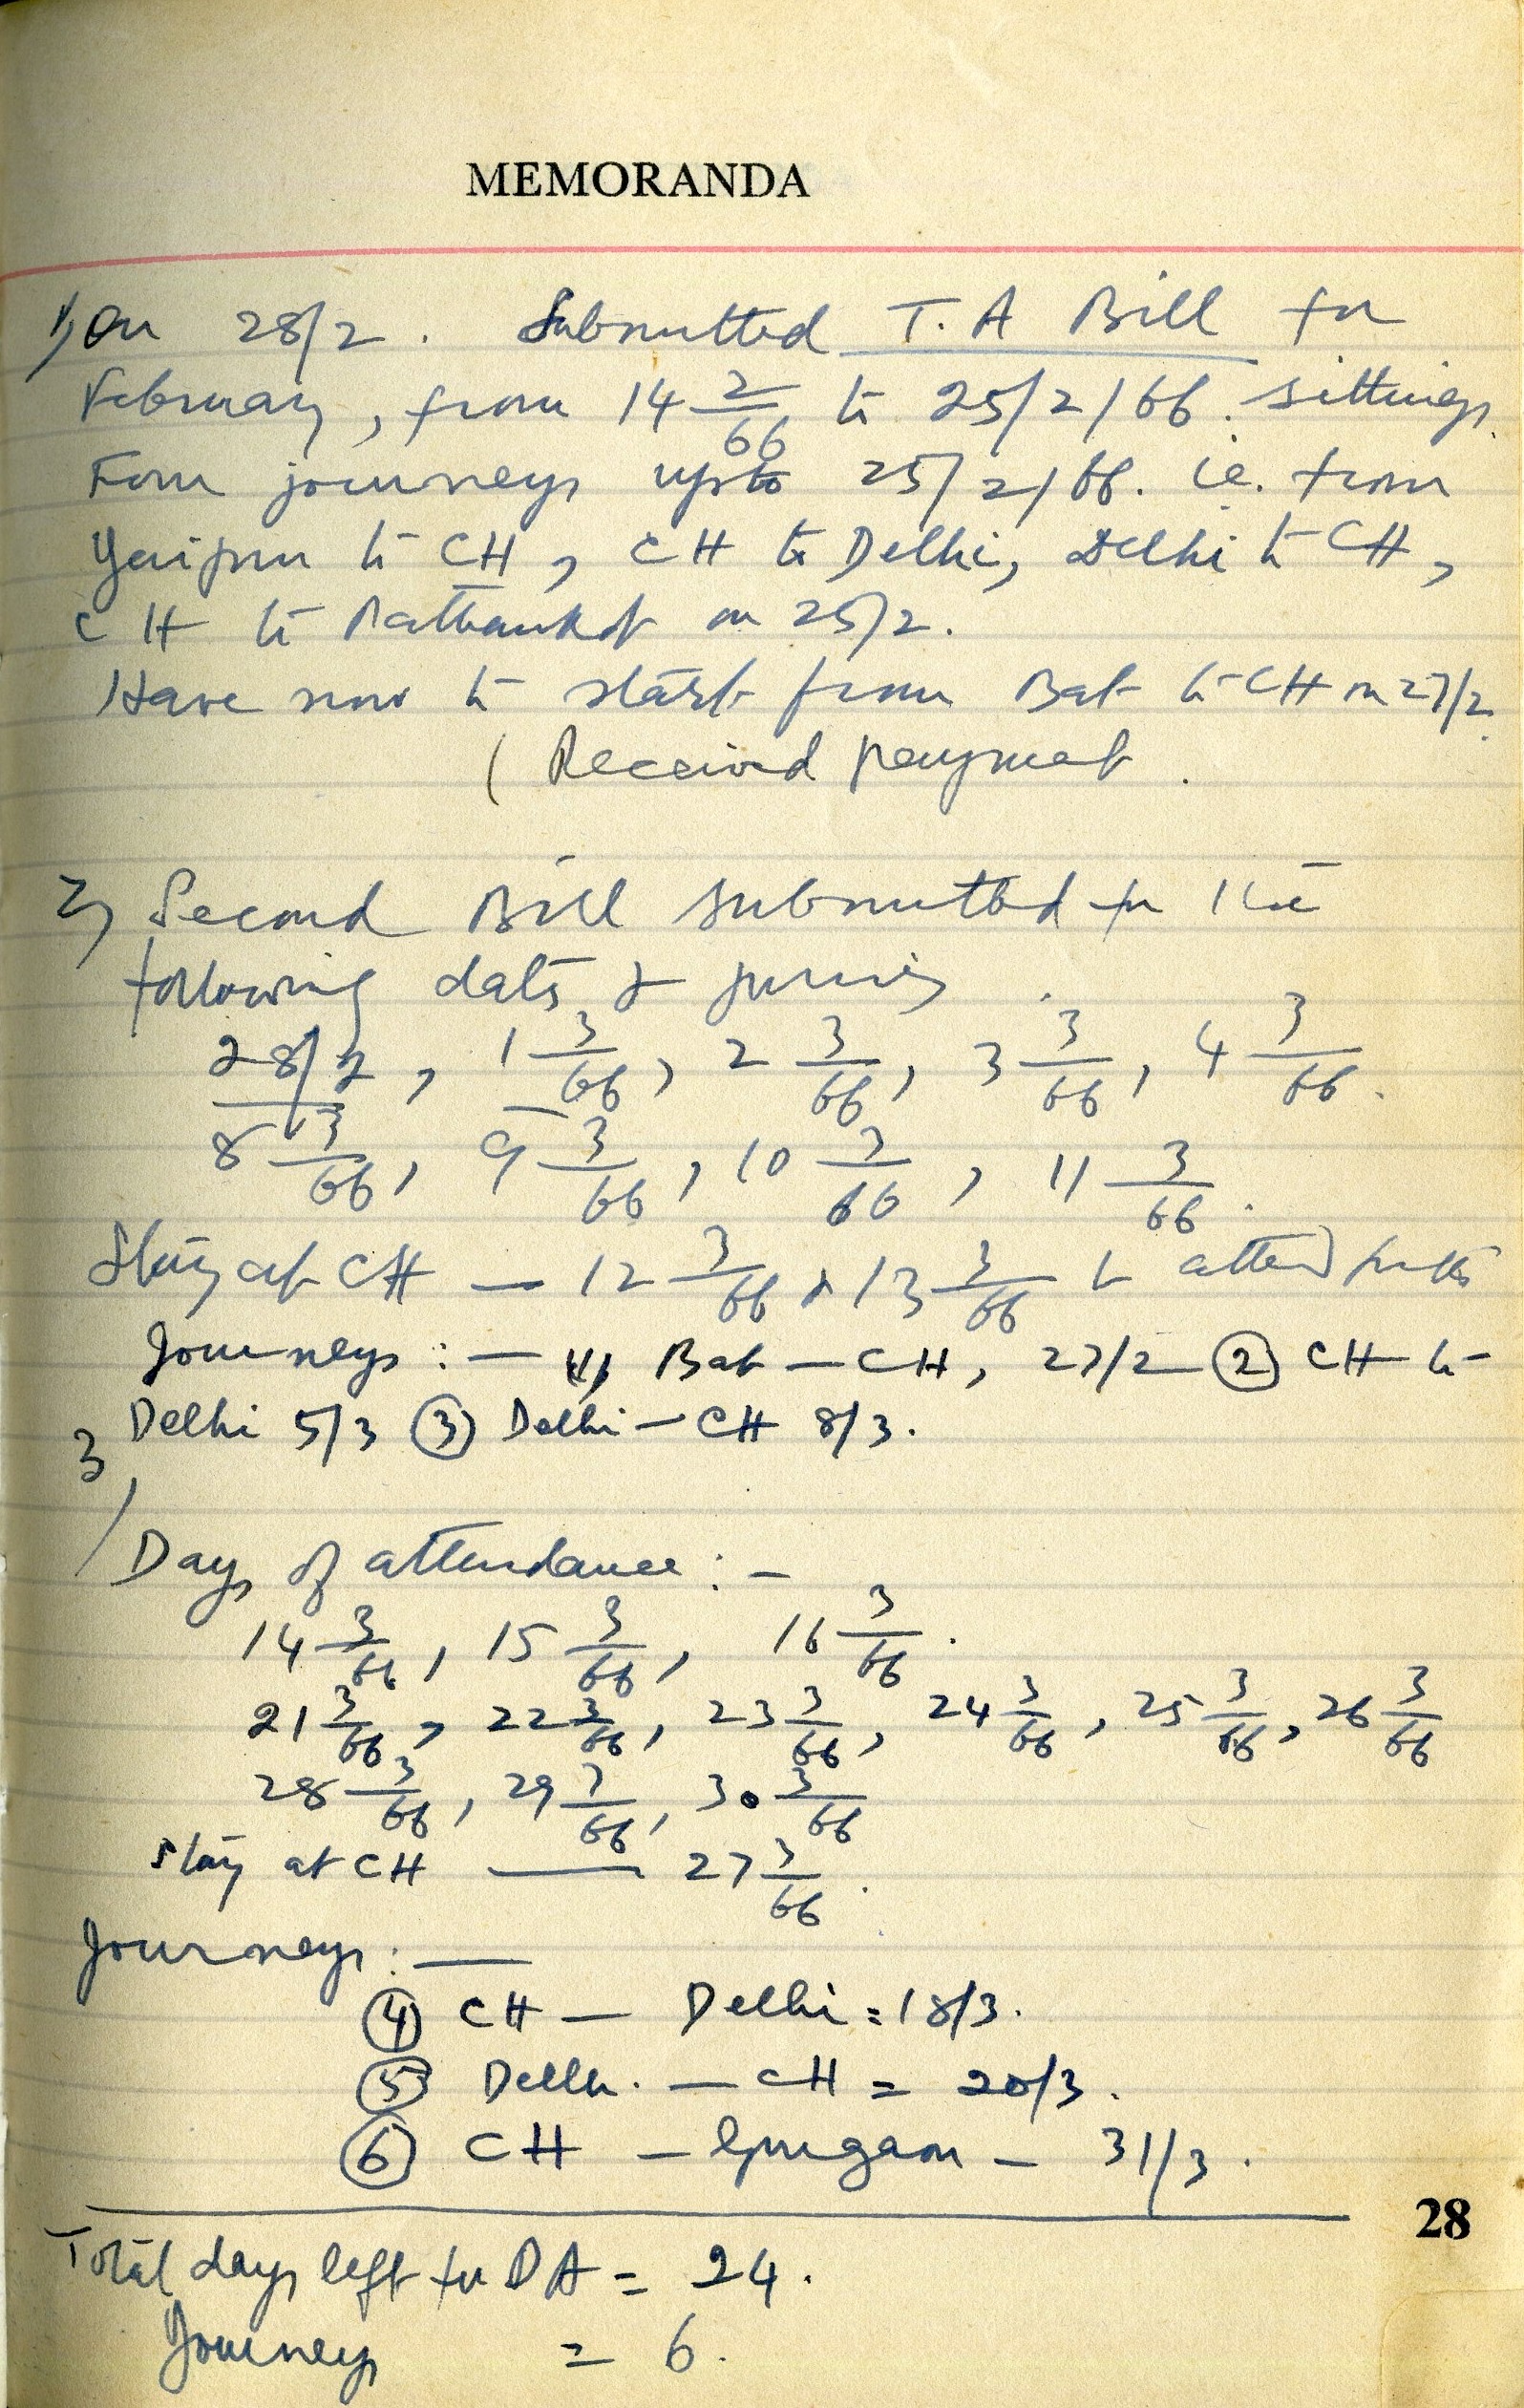 MEMORANDA
1) On 28/2. Submitted T. A Bill for
February, from 14 2/66 to 25/2/66. sittings.
Four journeys upto 25/2/66. i.e. from
Jaipur to CH, CH to Delhi, Delhi to CH,
CH to Pathankot on 25/2.
Have now to start from Bat to CH on 27/2.
( Received payment.
2) Second Bill submitted for the
following dates &
28/2, 1 3/66, 2 3/66, 3 3/66, 4 3/66.
8 3/66, 9 3/66, 10 3/66, 11 3/66.
Stay at CH — 12 3/66 & 13 3/66 to attend
Journeys :— (1) Bat — CH, 27/2 (2) CH to
Delhi 5/3 (3) Delhi — CH 8/3.
3/
Days of attendance :—
14 3/66, 15 3/66, 16 3/66.
21 3/66, 22 3/66, 23 3/66, 24 3/66, 25 3/66, 26 3/66
28 3/66, 29 3/66, 30 3/66
Stay at CH — 27 3/66.
Journeys :—
(4) CH — Delhi = 18/3.
(5) Delhi. — CH = 20/3.
(6) CH — Gurgaon — 31/3.
28
Total days left for DA = 24.
Journeys = 6.